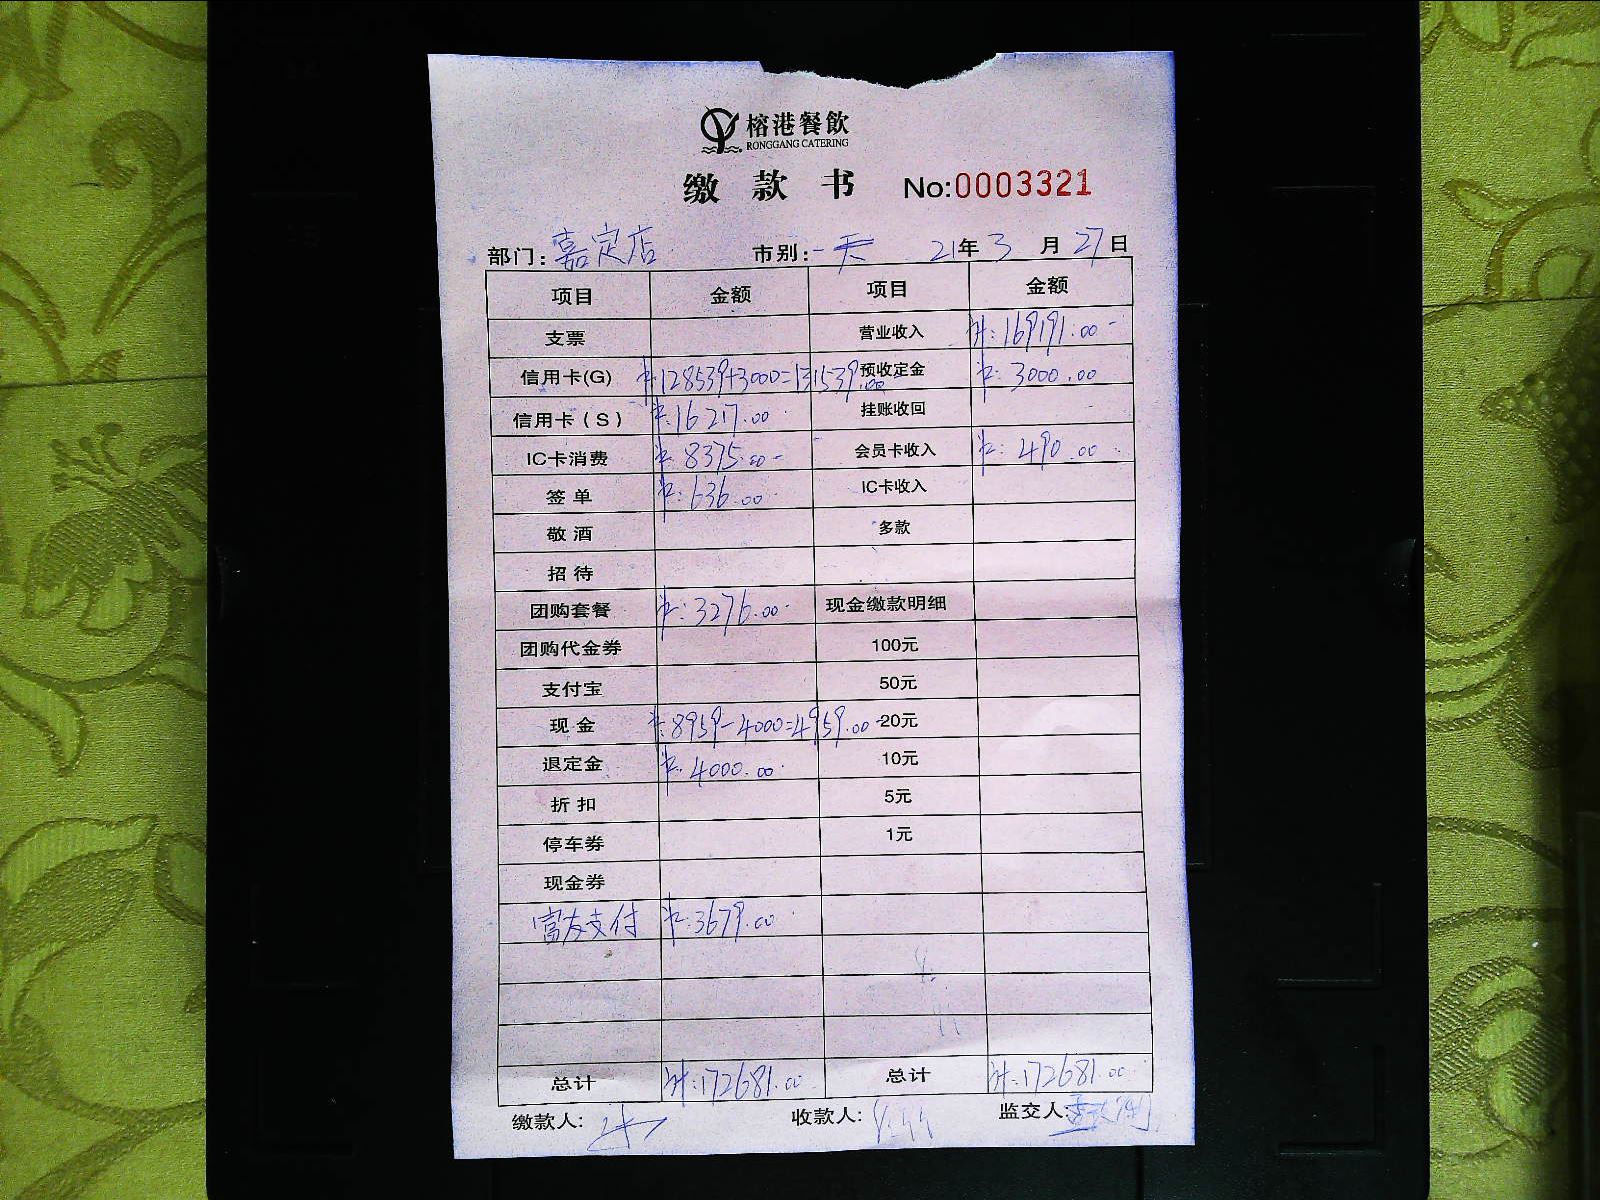 榕港餐飲
RONGGANG CATERING
缴款书 No:0003321
部门:嘉定店 市别:一天 21年3月27日
项目 金额 项目 金额
支票 营业收入 计:169191.00
信用卡(G) 卡:128539+3000=131539.00 预收定金 卡:3000.00
信用卡(S) 卡:16217.00 挂账收回
IC卡消费 卡:8375.00 会员卡收入 卡:490.00
签单 卡:636.00 IC卡收入
敬酒 多款
招待
团购套餐 卡:3276.00 现金缴款明细
团购代金券 100元
支付宝 50元
现金 卡:8959-4000=4959.00 20元
退定金 卡:4000.00 10元
折扣 5元
停车券 1元
现金券
富友支付 卡:3679.00
总计 计:172681.00 总计 计:172681.00
缴款人: 收款人: 监交人: